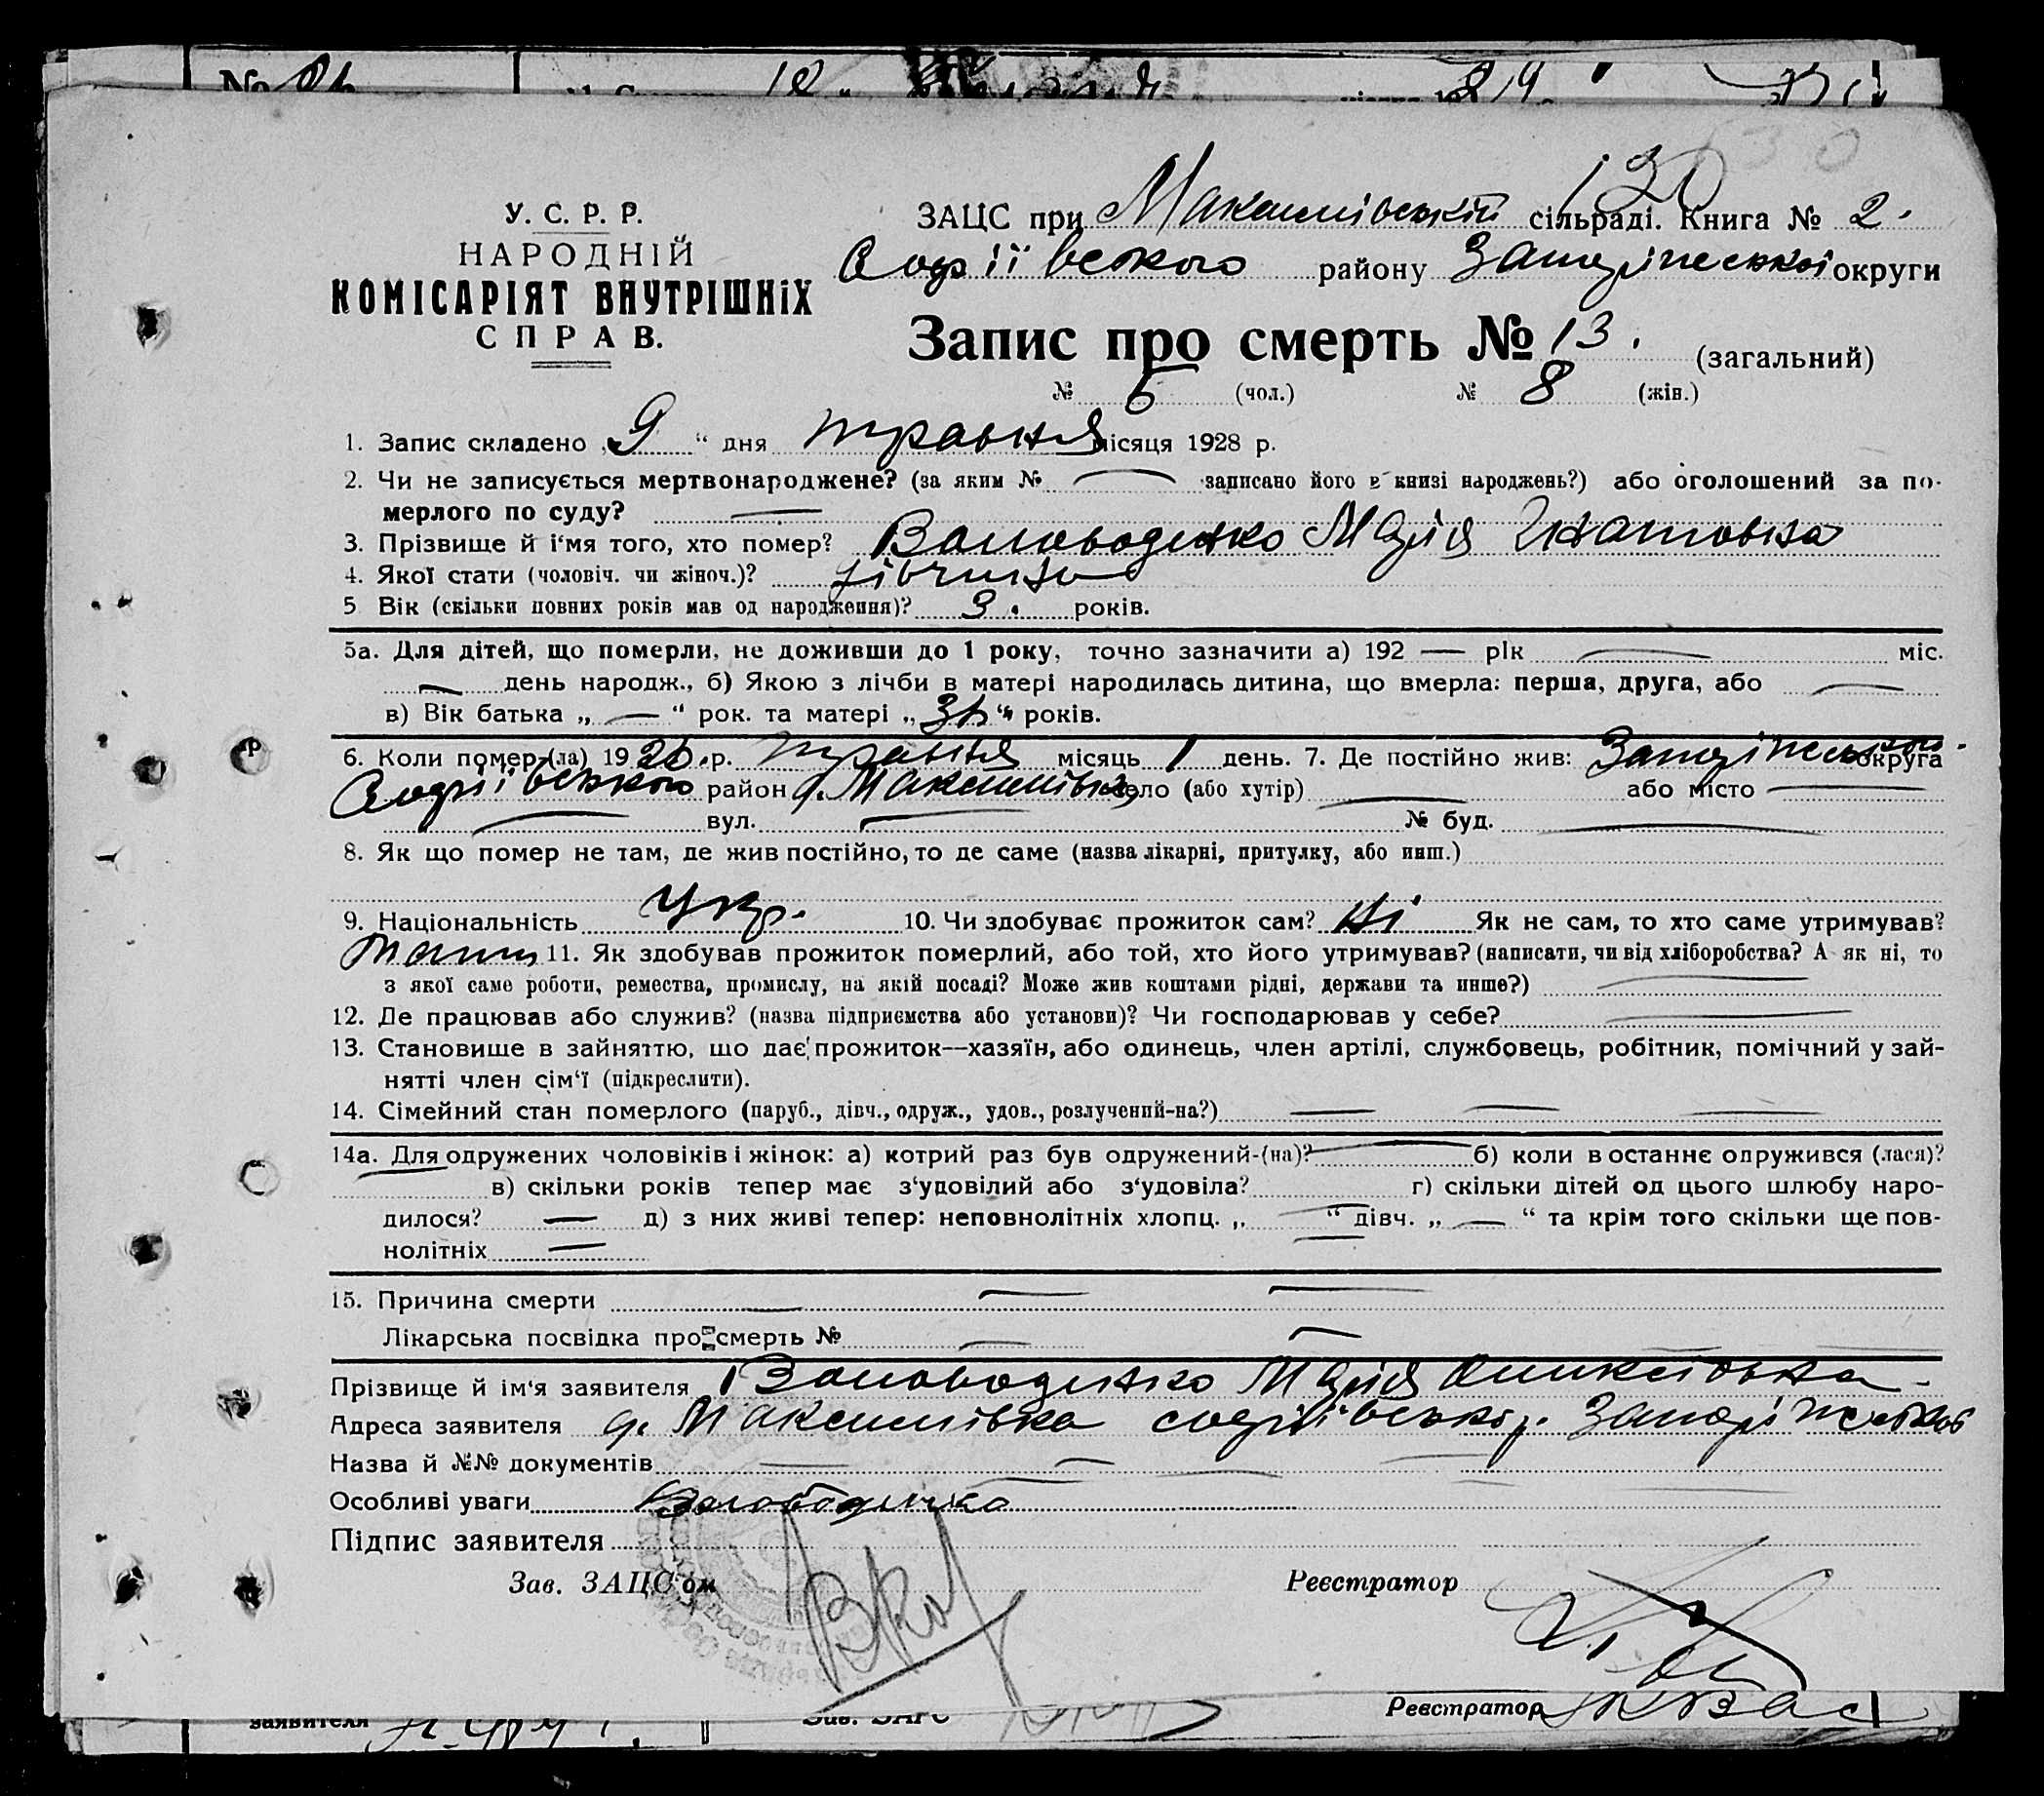 У. С. Р. Р.
НАРОДНІЙ
КОМІСАРІЯТ ВНУТРІШНіХ
СПРАВ.
130
ЗАЦС при Максимівській сільраді. Книга № 2.
Софіївського району Запоріжської округи
Запис про смерть № 13. (загальний)
№ 5 (чол.) № 8 (жін.)
1. Запис складено „9“ дня травня місяця 1928 р.
2. Чи не записується мертвонароджене? (за яким № — записано його в книзі народжень?) або оголошений за по-
мерлого по суду? —
3. Прізвище й і‘мя того, хто помер? Маріа Гнатовна
4. Якої стати (чоловіч. чи жіноч.)? дівчина
5 Вік (скільки повних років мав од народження)? 3. років.
5а. Для дітей, що померли, не доживши до 1 року, точно зазначити а) 192 — рік — міс.
— день народж., б) Якою з лічби в матері народилась дитина, що вмерла: перша, друга, або —
в) Вік батька „ — “ рок. та матері „ “ років.
6. Коли помер-(ла) 19 р. травня місяць 1 день. 7. Де постійно жив: Запоріжської округа
Софіївського район д. Максимівка село (або хутір) — або місто —
— вул. — № буд. —
8. Як що помер не там, де жив постійно, то де саме (назва лікарні, притулку, або инш.)
9. Національність Укр. 10. Чи здобуває прожиток сам? ні Як не сам, то хто саме утримував?
мати 11. Як здобував прожиток померлий, або той, хто його утримував? (написати, чи від хліборобства? А як ні, то
з якої саме роботи, ремества, промислу, на якій посаді? Може жив коштами рідні, держави та инше?) —
12. Де працював або служив? (назва підприємства або установи)? Чи господарював у себе? —
13. Становище в зайняттю, що дає прожиток—хазяїн, або одинець, член артілі, службовець, робітник, помічний у зай-
нятті член сім‘ї (підкреслити).
14. Сімейний стан померлого (паруб., дівч., одруж., удов., розлучений-на?) — — —
14а. Для одружених чоловіків і жінок: а) котрий раз був одружений-(на)? — б) коли в останнє одружився (лася)?
в) скільки років тепер має з‘удовілий або з‘удовіла? г) скільки дітей од цього шлюбу наро-
дилося? — д) з них живі тепер: неповнолітніх хлопц. „ — “ дівч. „ — “ та крім того скільки ще пов-
нолітніх —
15. Причина смерти — — —
Лікарська посвідка про смерть № — —
Прізвище й ім‘я заявителя Маріа
Адреса заявителя д. Максимівка Софіївськ р. Запоріжської
Назва й №№ документів — — — —
Особливі уваги
Підпис заявителя
Зав. ЗАЦС‘ом Реєстратор
Реєстратор